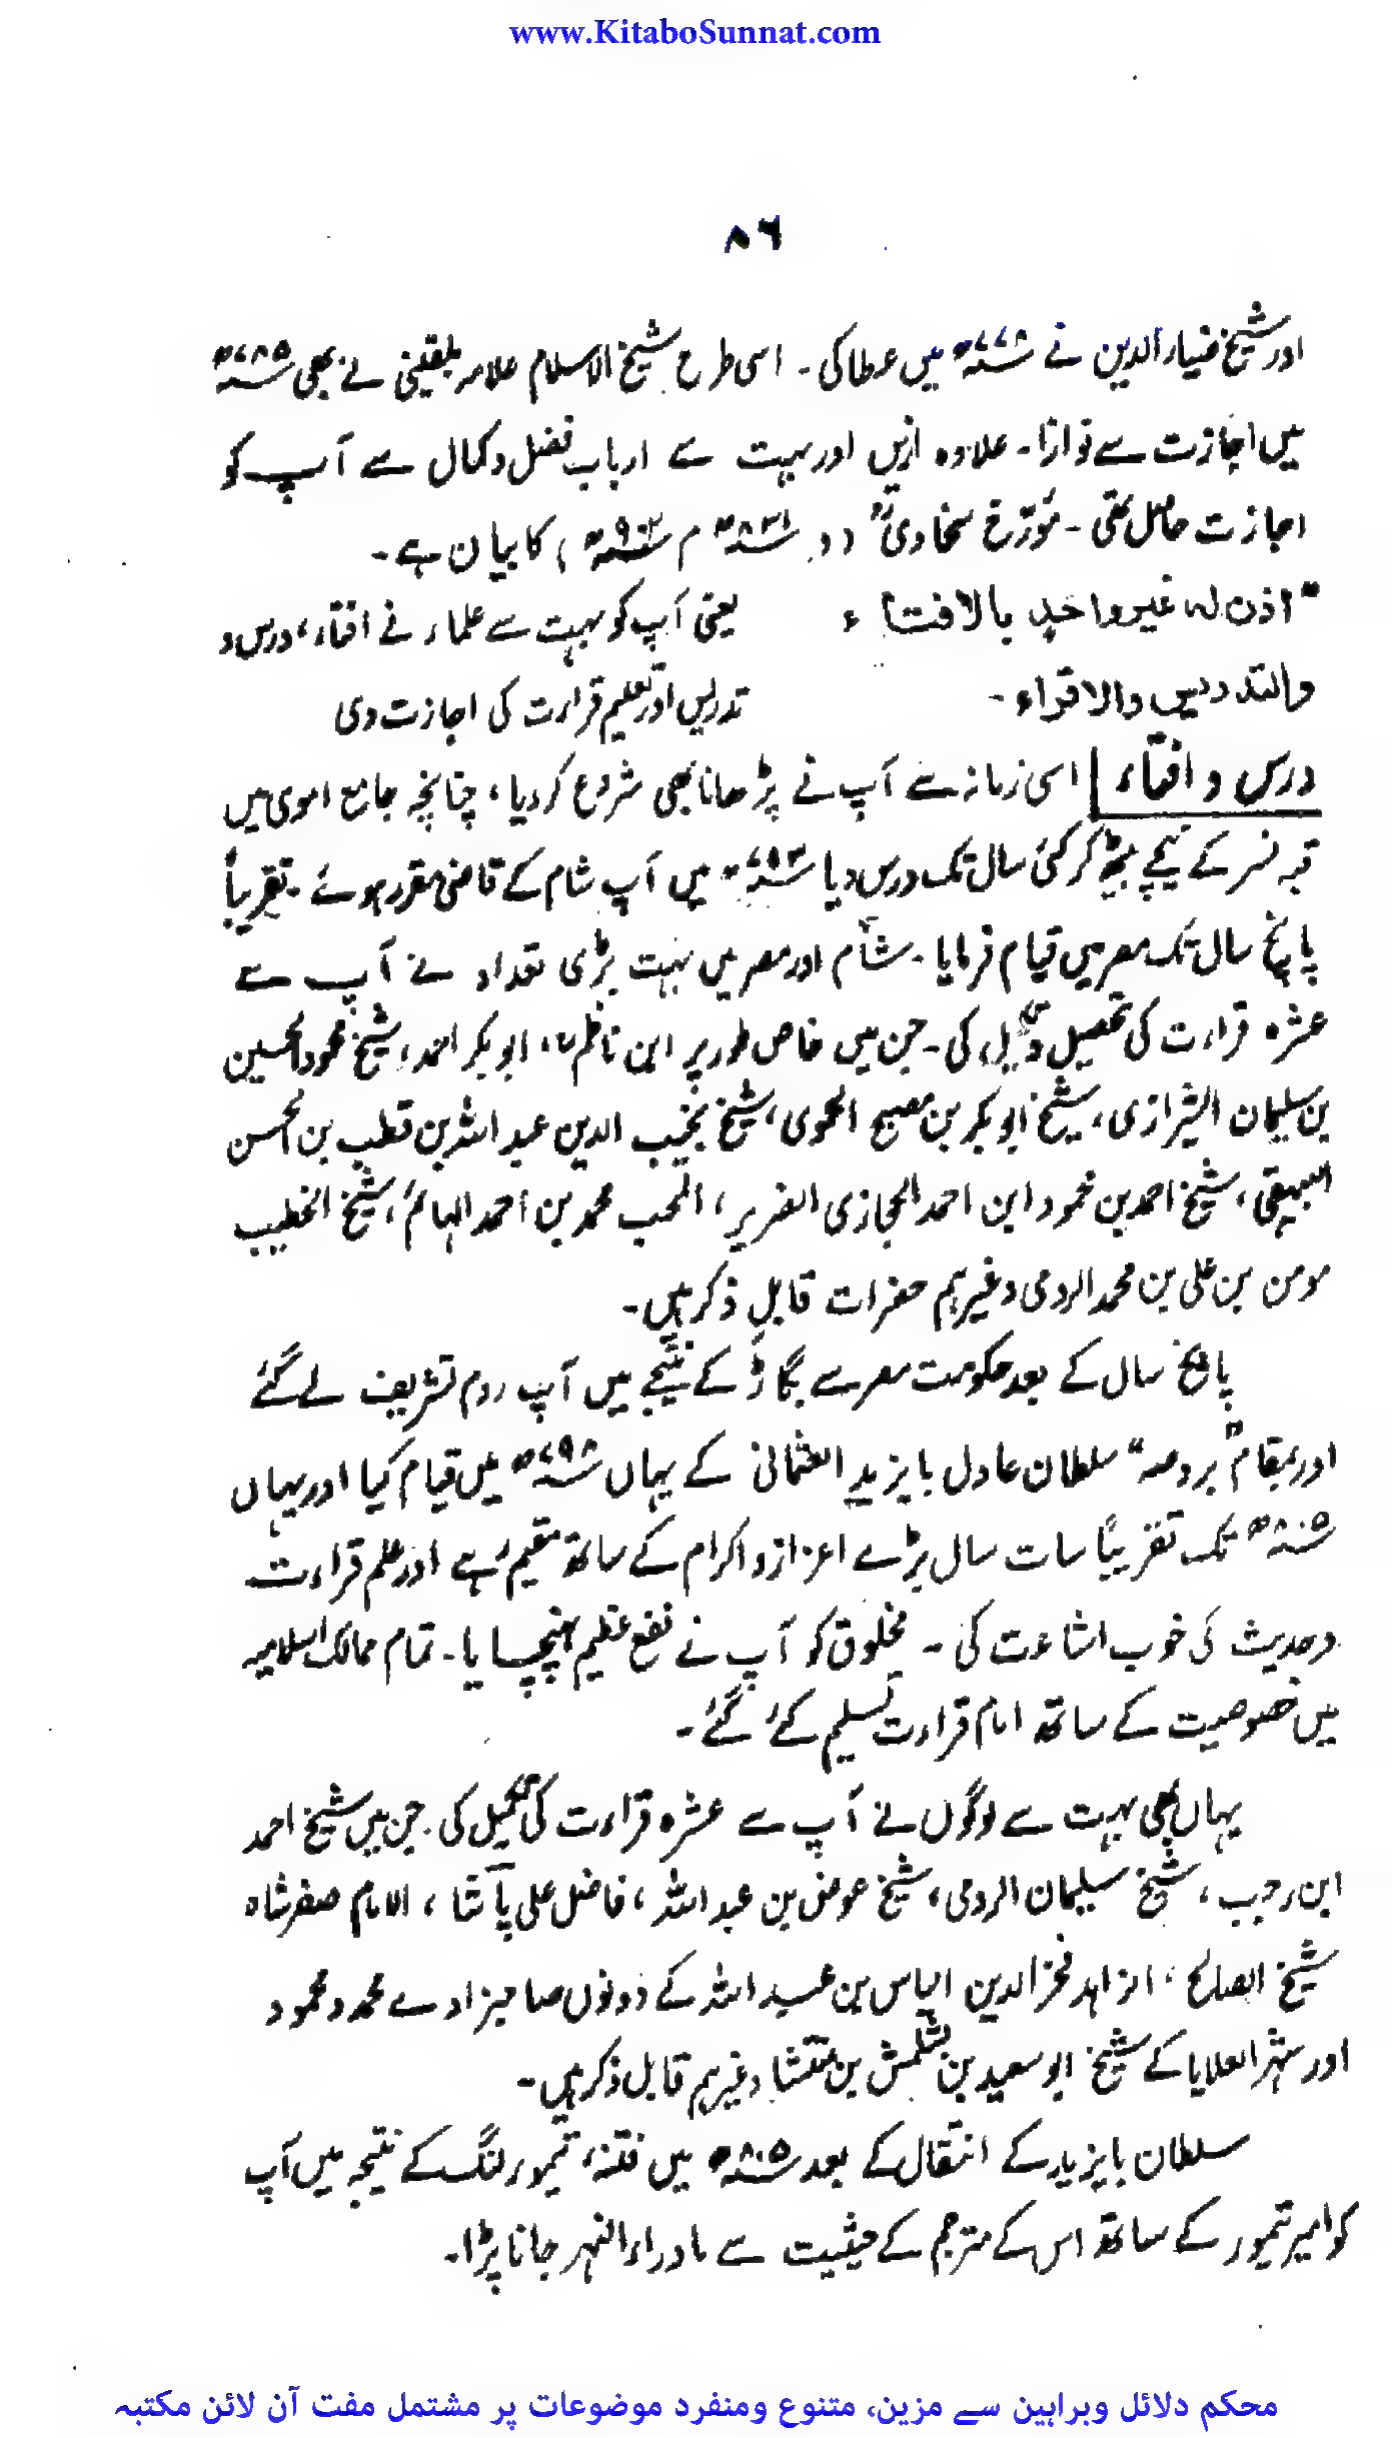 www.KitaboSunnat.com
۸۶
اور شیخ ضیاء الدین نے ۷۷۸ھ میں عطا کی۔ اسی طرح شیخ الاسلام علامہ بلقینی نے بھی ۷۸۵ھ
میں اجازت سے نوازا۔ علاوہ ازیں اور بہت سے ارباب فضل و کمال سے آپ کو
اجازت حاصل تھی۔ مؤرّخ سخاویؒ (و ۸۳۱ھ م ۹۰۲ھ) کا بیان ہے۔
"اذن لہ غیر واحدٍ بالافتاء    یعنی آپ کو بہت سے علماء نے افتاء، درس و
والتدریس والاقراء۔    تدریس اور تعلیم قراءت کی اجازت دی
درس و افتاء اسی زمانہ سے آپ نے پڑھانا بھی شروع کر دیا، چنانچہ جامع اموی میں
قبہ نسر کے نیچے بیٹھ کر کئی سال تک درس دیا ۷۹۳ھ میں آپ شام کے قاضی مقرر ہوئے۔ تقریباً
پانچ سال تک مصر میں قیام فرمایا۔ شام اور مصر میں بہت بڑی تعداد نے آپ سے
عشرہ قراءت کی تحصیل و تکمیل کی۔ جن میں خاص طور پر ابن ناظم، ابو بکر احمد، شیخ محمود الحسین
بن سلیمان الشیرازی، شیخ ابو بکر بن مصبح الحموی، شیخ نجیب الدین عبد اللہ بن قطب بن الحسن
البیہقی، شیخ احمد بن محمود ابن احمد الحجازی الضریر، المحب محمد بن احمد الہائم، شیخ الخطیب
مومن بن علی بن محمد الرومی وغیرہم حضرات قابلِ ذکر ہیں۔
پانچ سال کے بعد حکومت مصر سے بگاڑ کے نتیجے میں آپ روم تشریف لے گئے
اور بمقام "بروصہ" سلطان عادل بایزید العثمانی کے یہاں ۷۹۸ھ میں قیام کیا اور یہاں
۸۰۵ھ تک تقریباً سات سال بڑے اعزاز و اکرام کے ساتھ مقیم رہے اور علم قراءت
و حدیث کی خوب اشاعت کی۔ مخلوق کو آپ نے نفع عظیم پہنچایا۔ تمام ممالک اسلامیہ
میں خصوصیت کے ساتھ امام قراءت تسلیم کئے گئے۔
یہاں بھی بہت سے لوگوں نے آپ سے عشرہ قراءت کی تکمیل کی۔ جن میں شیخ احمد
ابن رجب، شیخ سلیمان الرومی، شیخ عوض بن عبد اللہ، فاضل علی پاشا، الامام صفر شاہ
شیخ الصالح، الزاہد فخر الدین الیاس بن عبد اللہ کے دونوں صاحبزادے محمد و محمود
اور شہر العلایا کے شیخ ابو سعید بن بشلمش بن منتشا وغیرہم قابل ذکر ہیں۔
سلطان بایزید کے انتقال کے بعد ۸۰۵ھ میں فتنۂ تیمور لنگ کے نتیجہ میں آپ
کو امیر تیمور کے ساتھ اس کے مترجم کے حیثیت سے ماوراء النہر جانا پڑا۔
محکم دلائل وبراہین سے مزین، متنوع ومنفرد موضوعات پر مشتمل مفت آن لائن مکتبہ